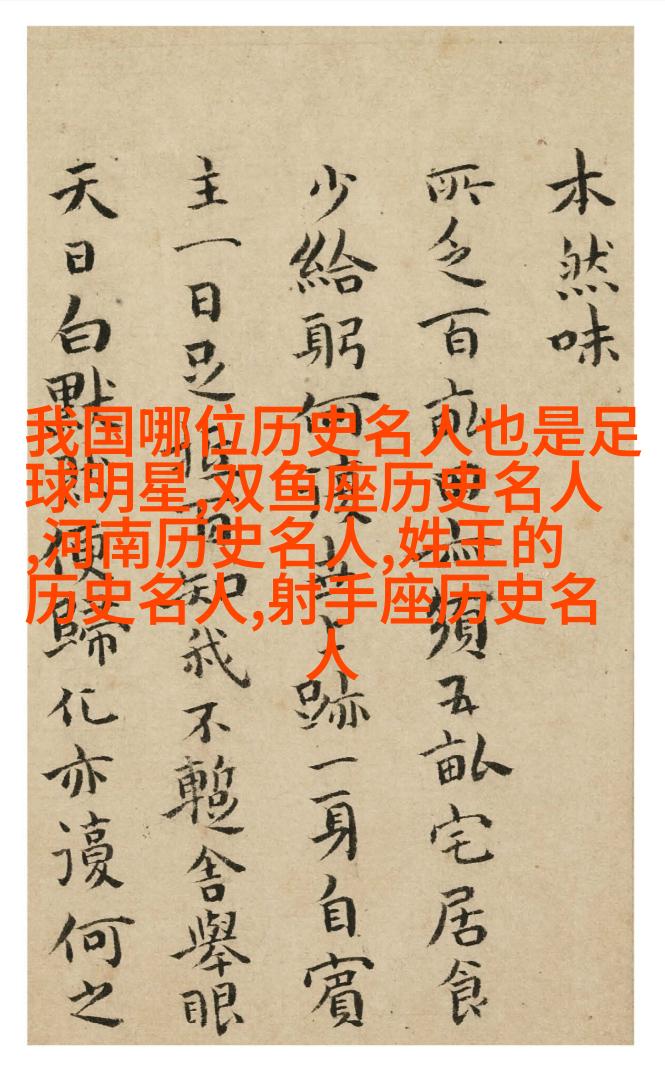 我国哪位历史名人也是足
球明星,双鱼座历史名人
,河南历史名人,姓王的
历史名人,射手座历史名
人
本然味
所乏百田須五畝宅居食
少給躬何跡一身自賓
主一日足而知我不暫舍舉眼
天日白默便歸化亦復何之